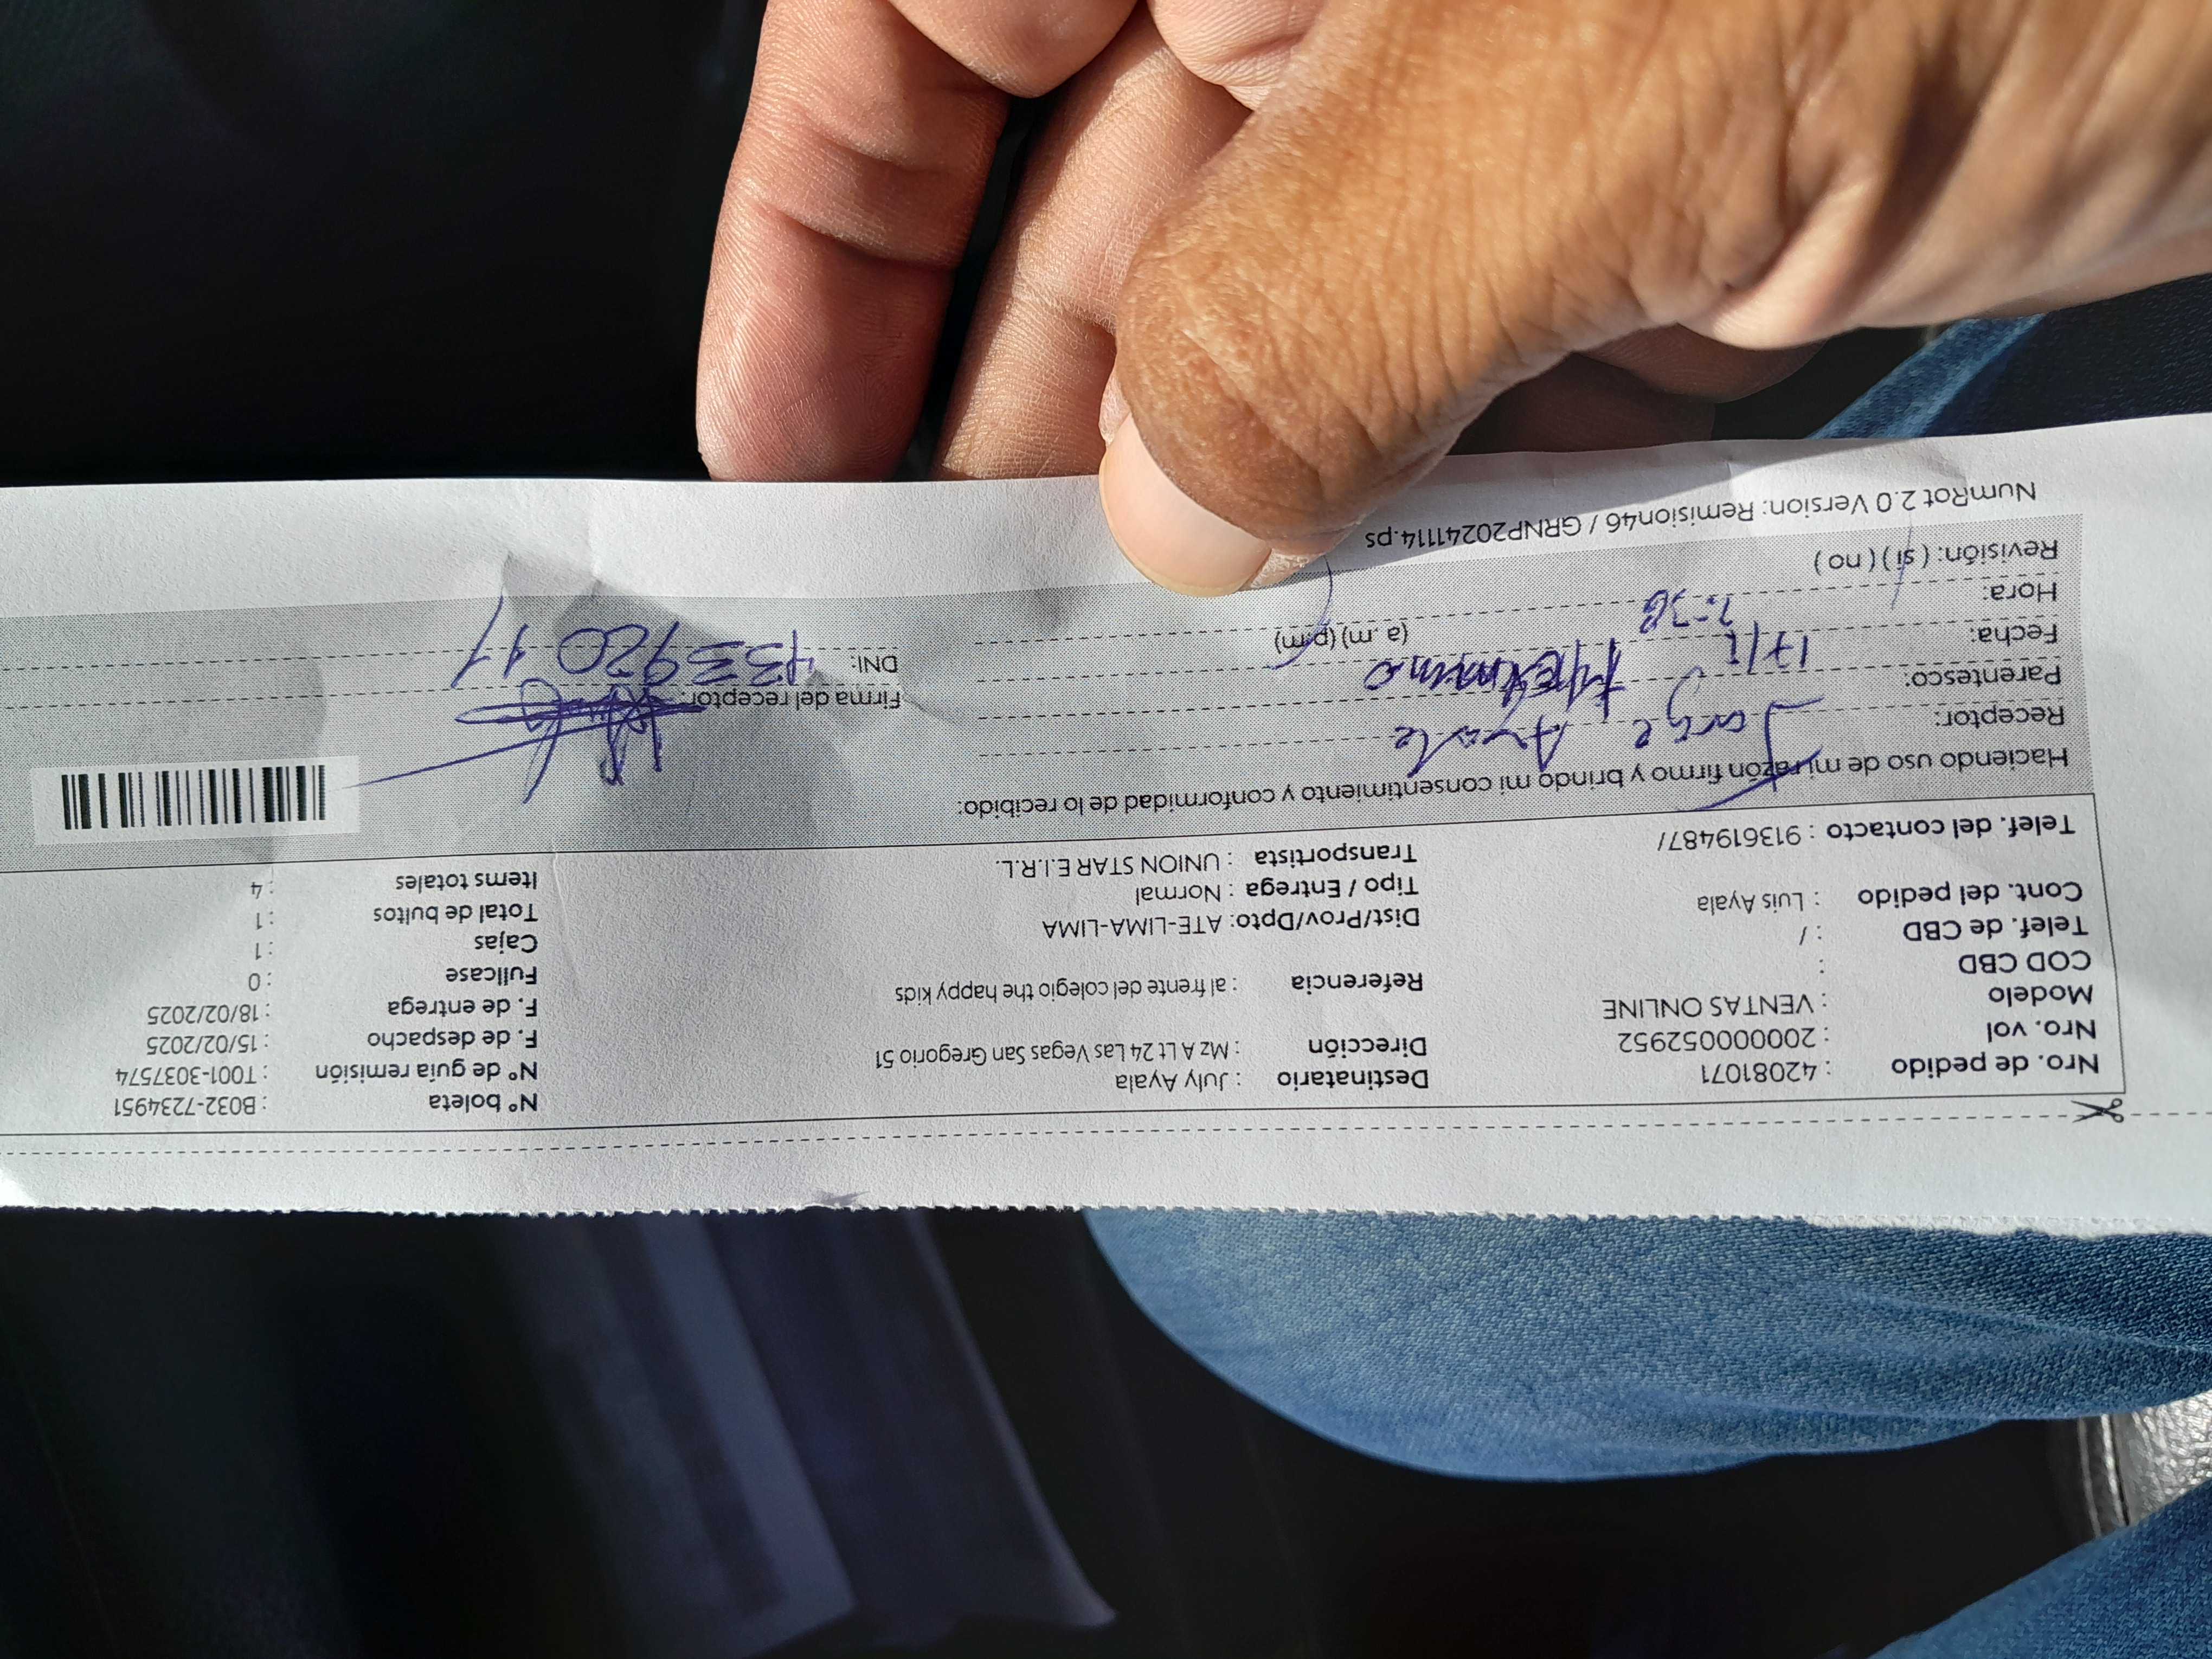 Nro. de pedido : 42081071
Nro. vol : 20000052952
Modelo : VENTAS ONLINE
COD CBD :
Telef. de CBD : /
Cont. del pedido : Luis Ayala
Telef. del contacto : 913619487/
Destinatario : July Ayala
Dirección : Mz A Lt 24 Las Vegas San Gregorio 51
Referencia : al frente del colegio the happy kids
Dist/Prov/Dpto: ATE-LIMA-LIMA
Tipo / Entrega : Normal
Transportista : UNION STAR E.I.R.L.
N° boleta : B032-7234951
N° de guía remisión : T001-3037574
F. de despacho : 15/02/2025
F. de entrega : 18/02/2025
Fullcase : 0
Cajas : 1
Total de bultos : 1
Items totales : 4
Haciendo uso de mi razón firmo y brindo mi consentimiento y conformidad de lo recibido:
Receptor: Jorge Ayala
Parentesco:
Fecha: 17/2
Hora: (a. m) (p.m)
Revisión: ( si ) ( no )
Firma del receptor:
DNI: 43392017
NumRot 2.0 Version: Remision46 / GRNP20241114.ps